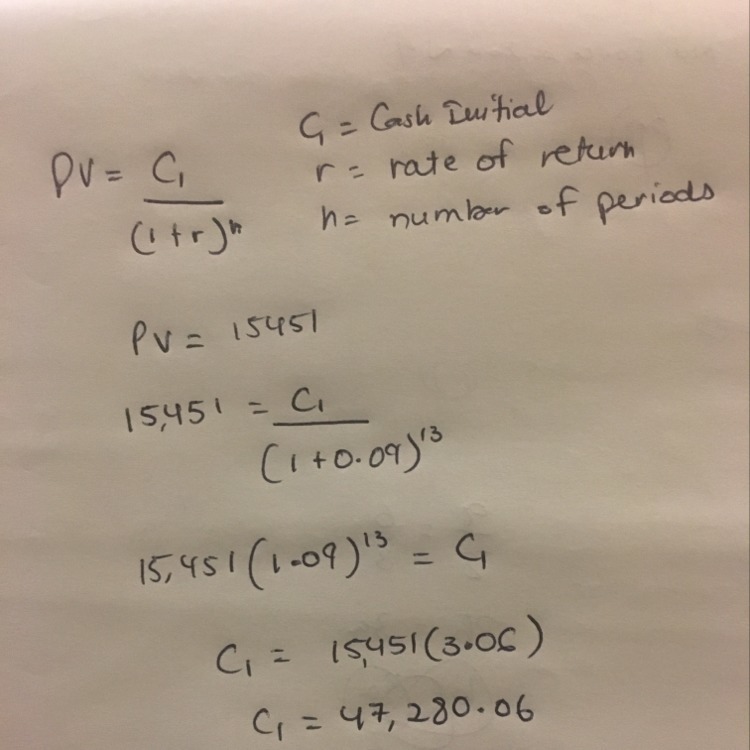 PV = C₁ / (1+r)ⁿ
C₁ = Cash Initial
r = rate of return
n = number of periods
PV = 15451
15,451 = C₁ / (1+0.09)¹³
15,451(1.09)¹³ = C₁
C₁ = 15,451(3.06)
C₁ = 47,280.06